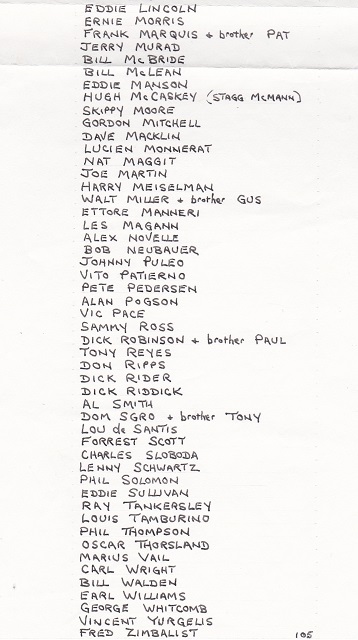 EDDIE LINCOLN
ERNIE MORRIS
FRANK MARQUIS + brother PAT
JERRY MURAD
BILL McBRIDE
BILL McLEAN
EDDIE MANSON
HUGH McCASKEY (STAGG McMANN)
SKIPPY MOORE
GORDON MITCHELL
DAVE MACKLIN
LUCIEN MONNERAT
NAT MAGGIT
JOE MARTIN
HARRY MEISELMAN
WALT MILLER + brother GUS
ETTORE MANNERI
LES MAGANN
ALEX NOVELLE
BOB NEUBAUER
JOHNNY PULEO
VITO PATIERNO
PETE PEDERSEN
ALAN POGSON
VIC PACE
SAMMY ROSS
DICK ROBINSON + brother PAUL
TONY REYES
DON RIPPS
DICK RIDER
DICK RIDDICK
AL SMITH
DOM SGRO + brother TONY
LOU de SANTIS
FORREST SCOTT
CHARLES SLOBODA
LENNY SCHWARTZ
PHIL SOLOMON
EDDIE SULLIVAN
RAY TANKERSLEY
LOUIS TAMBURINO
PHIL THOMPSON
OSCAR THORSLAND
MARIUS VAIL
CARL WRIGHT
BILL WALDEN
EARL WILLIAMS
GEORGE WHITCOMB
VINCENT YURGELIS
FRED ZIMBALIST 105